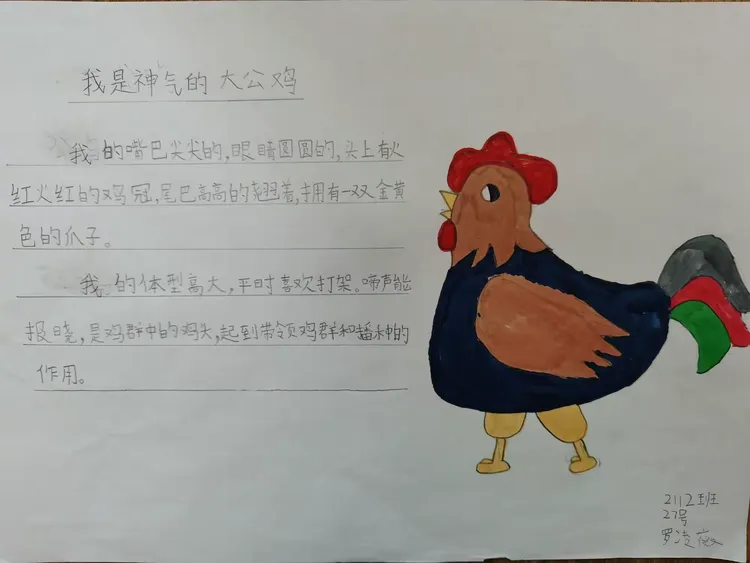 我是神气的大公鸡
我的嘴巴尖尖的,眼睛圆圆的,头上有火
红火红的鸡冠,尾巴高高的翘着,拥有一双金黄
色的爪子。
我的体型高大,平时喜欢打架。啼声能
报晓,是鸡群中的鸡头,起到带领鸡群和播种的
作用。
2112班
27号
罗凌